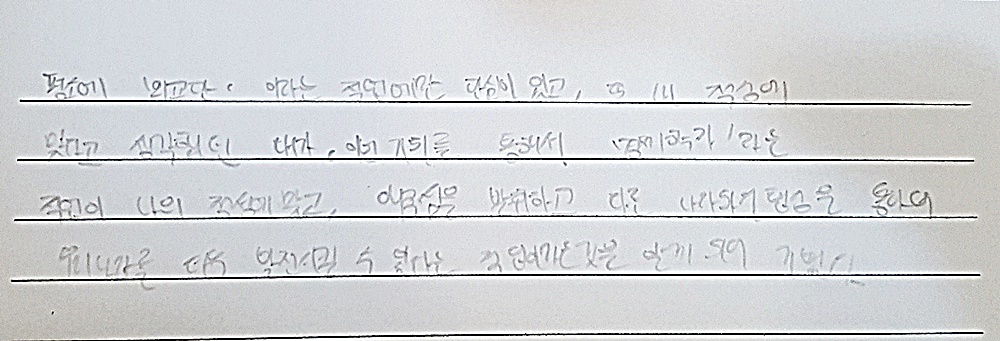 평소에 '외교관' 이라는 직업에만 관심이 있고, 또 내 적성에
맞다고 생각했던 내가, 이번 기회를 통해서 라는
직업이 나의 적성에 맞고, 애국심을 발휘하고 다른 나라와의 협상을 통하여
우리나라를 더욱 발전시킬 수 있다는 직업이라는 것을 알게 되어